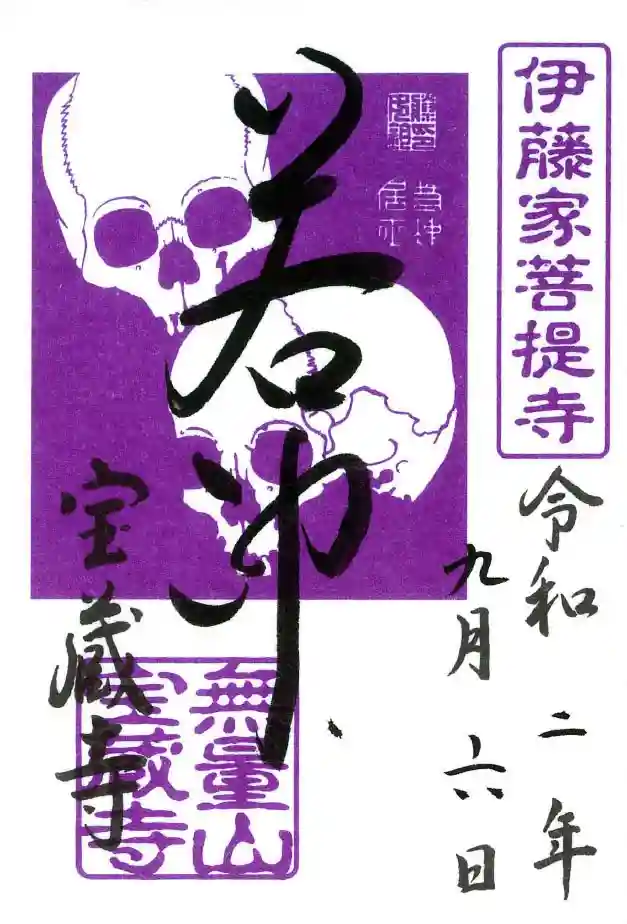 伊藤家菩提寺
令和二年
九月六日
若冲
宝蔵寺
無量山
宝蔵寺